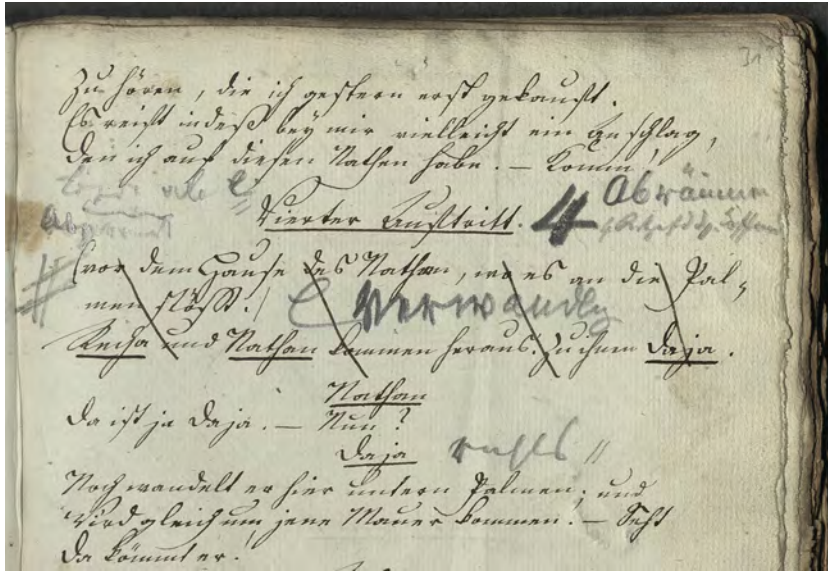 31
Zu hören, die ich gestern erst gekauft.
Es reift indeß bey mir vielleicht ein Anschlag,
Den ich auf diesen Nathan habe. — Komm!
Vierter Auftritt. 4 Abräumen
(vor dem Hause des Nathan, wo es an die Pal-
men stößt.)
Verwandlg
Recha und Nathan kommen heraus. Zu ihnen Daja.
Nathan
Da ist ja Daja. — Nun?
Daja rechts
Noch wandelt er hier untern Palmen; und
Wird gleich um jene Mauer kommen. — Seht
Da kömmt er!